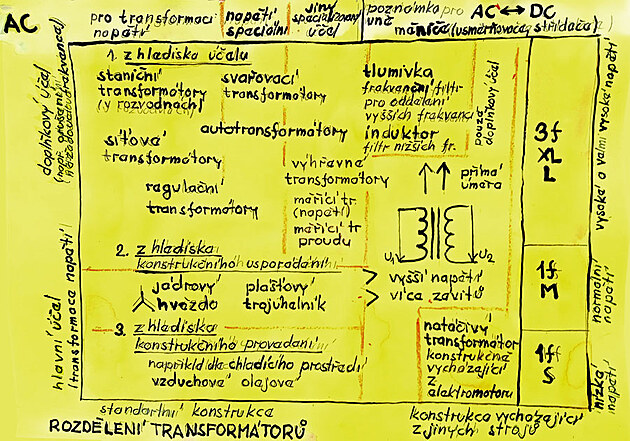 AC
pro transformaci
napětí
napětí
speciální
jiný
speciální
účel
poznámka pro
AC ↔ DC
měniče (usměrňovače, střídače)
1. z hlediska účelu
staniční
transformátory
(v rozvodnách)
svařovací
transformátory
tlumivka
frekvenční filtr
pro oddělání
vyšších frekvencí
induktor
filtr nižších fr.
pouze
doplňkový účel
autotransformátory
síťové
transformátory
výhřevné
transformátory
regulační
transformátory
měřící tr
(napětí)
měřící tr
proudu
přímá
úměra
U1
U2
2. z hlediska
konstrukčního uspořádání
jádrový
plášťový
hvězda
trojuhelník
vyšší napětí
více závitů
3. z hlediska
konstrukčního provedení
například dle chladícího prostředí
vzduchové olejové
natáčivý
transformátor
konstrukčně
vycházející
z
elektromotoru
3f
XL
L
1f
M
1f
S
vysoké o velmi vysoké napětí
normální
napětí
nízká
napětí
doplňkový účel
hlavní účel
transformace napětí
standartní konstrukce
konstrukce vycházející
z jiných strojů
ROZDĚLENÍ TRANSFORMÁTORŮ